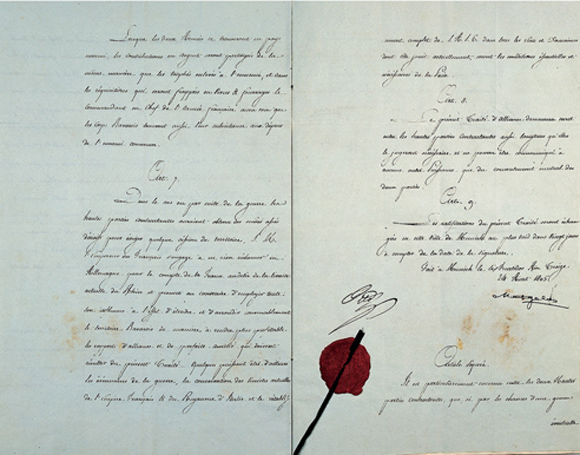 Lorsque les deux Armées se trouveront en pays
ennemi, les contributions en argent seront partagées de la
même manière, que les trophés enlevés à l'ennemi, et dans
les réquisitions qui seront frappées en
Commandant en Chef de l'Armée française aura soin que
les Corps Bavarois
l'ennemi commun.
Art. 7.
Dans le cas ou par suite de la guerre les
hautes parties contractantes auraient obtenu des succès assez
décisifs pour exiger quelque cession de territoire, S. M.
l'Empereur des Français s'engage à ne rien réclamer en
Allemagne pour le compte de la France au delà de la limite
actuelle du Rhin et promet au contraire d'employer toute
son influence à l'effet d'étendre et d'arrondir convenablement
le territoire Bavarois de manière à rendre plus profitables
les rapports d'alliance et de parfaite amitié qui doivent
résulter du présent Traité. Quelques puissent être d'ailleurs
les évènemens de la guerre, la conservation des limites actuelles
de l'Empire Français & du Royaume d'Italie, et le
complet de S. M. I. & dans tous les et Souverainetés
dont Elle jouit actuellement, seront les conditions essentielles et
nécessaires de la Paix.
Art. 8.
Le présent Traité d'alliance demeurera secret
entre les hautes parties contractantes aussi longtems qu'elles
le jugeront nécessaire et ne pourra être communiqué à
aucune autre Puissance que du consentement mutuel des
deux parties.
Art. 9.
Les ratifications du présent Traité seront échan-
gées en cette Ville de Munich au plus tard dans vingt jours
à compter de la date de la signature.
Fait à Munich le Fructidor An Treize.
24 Août 1805.
Montgelas
Article séparé.
Il est particulièrement convenu entre les deux Hautes
parties contractantes, que si par les chances d'une guerre